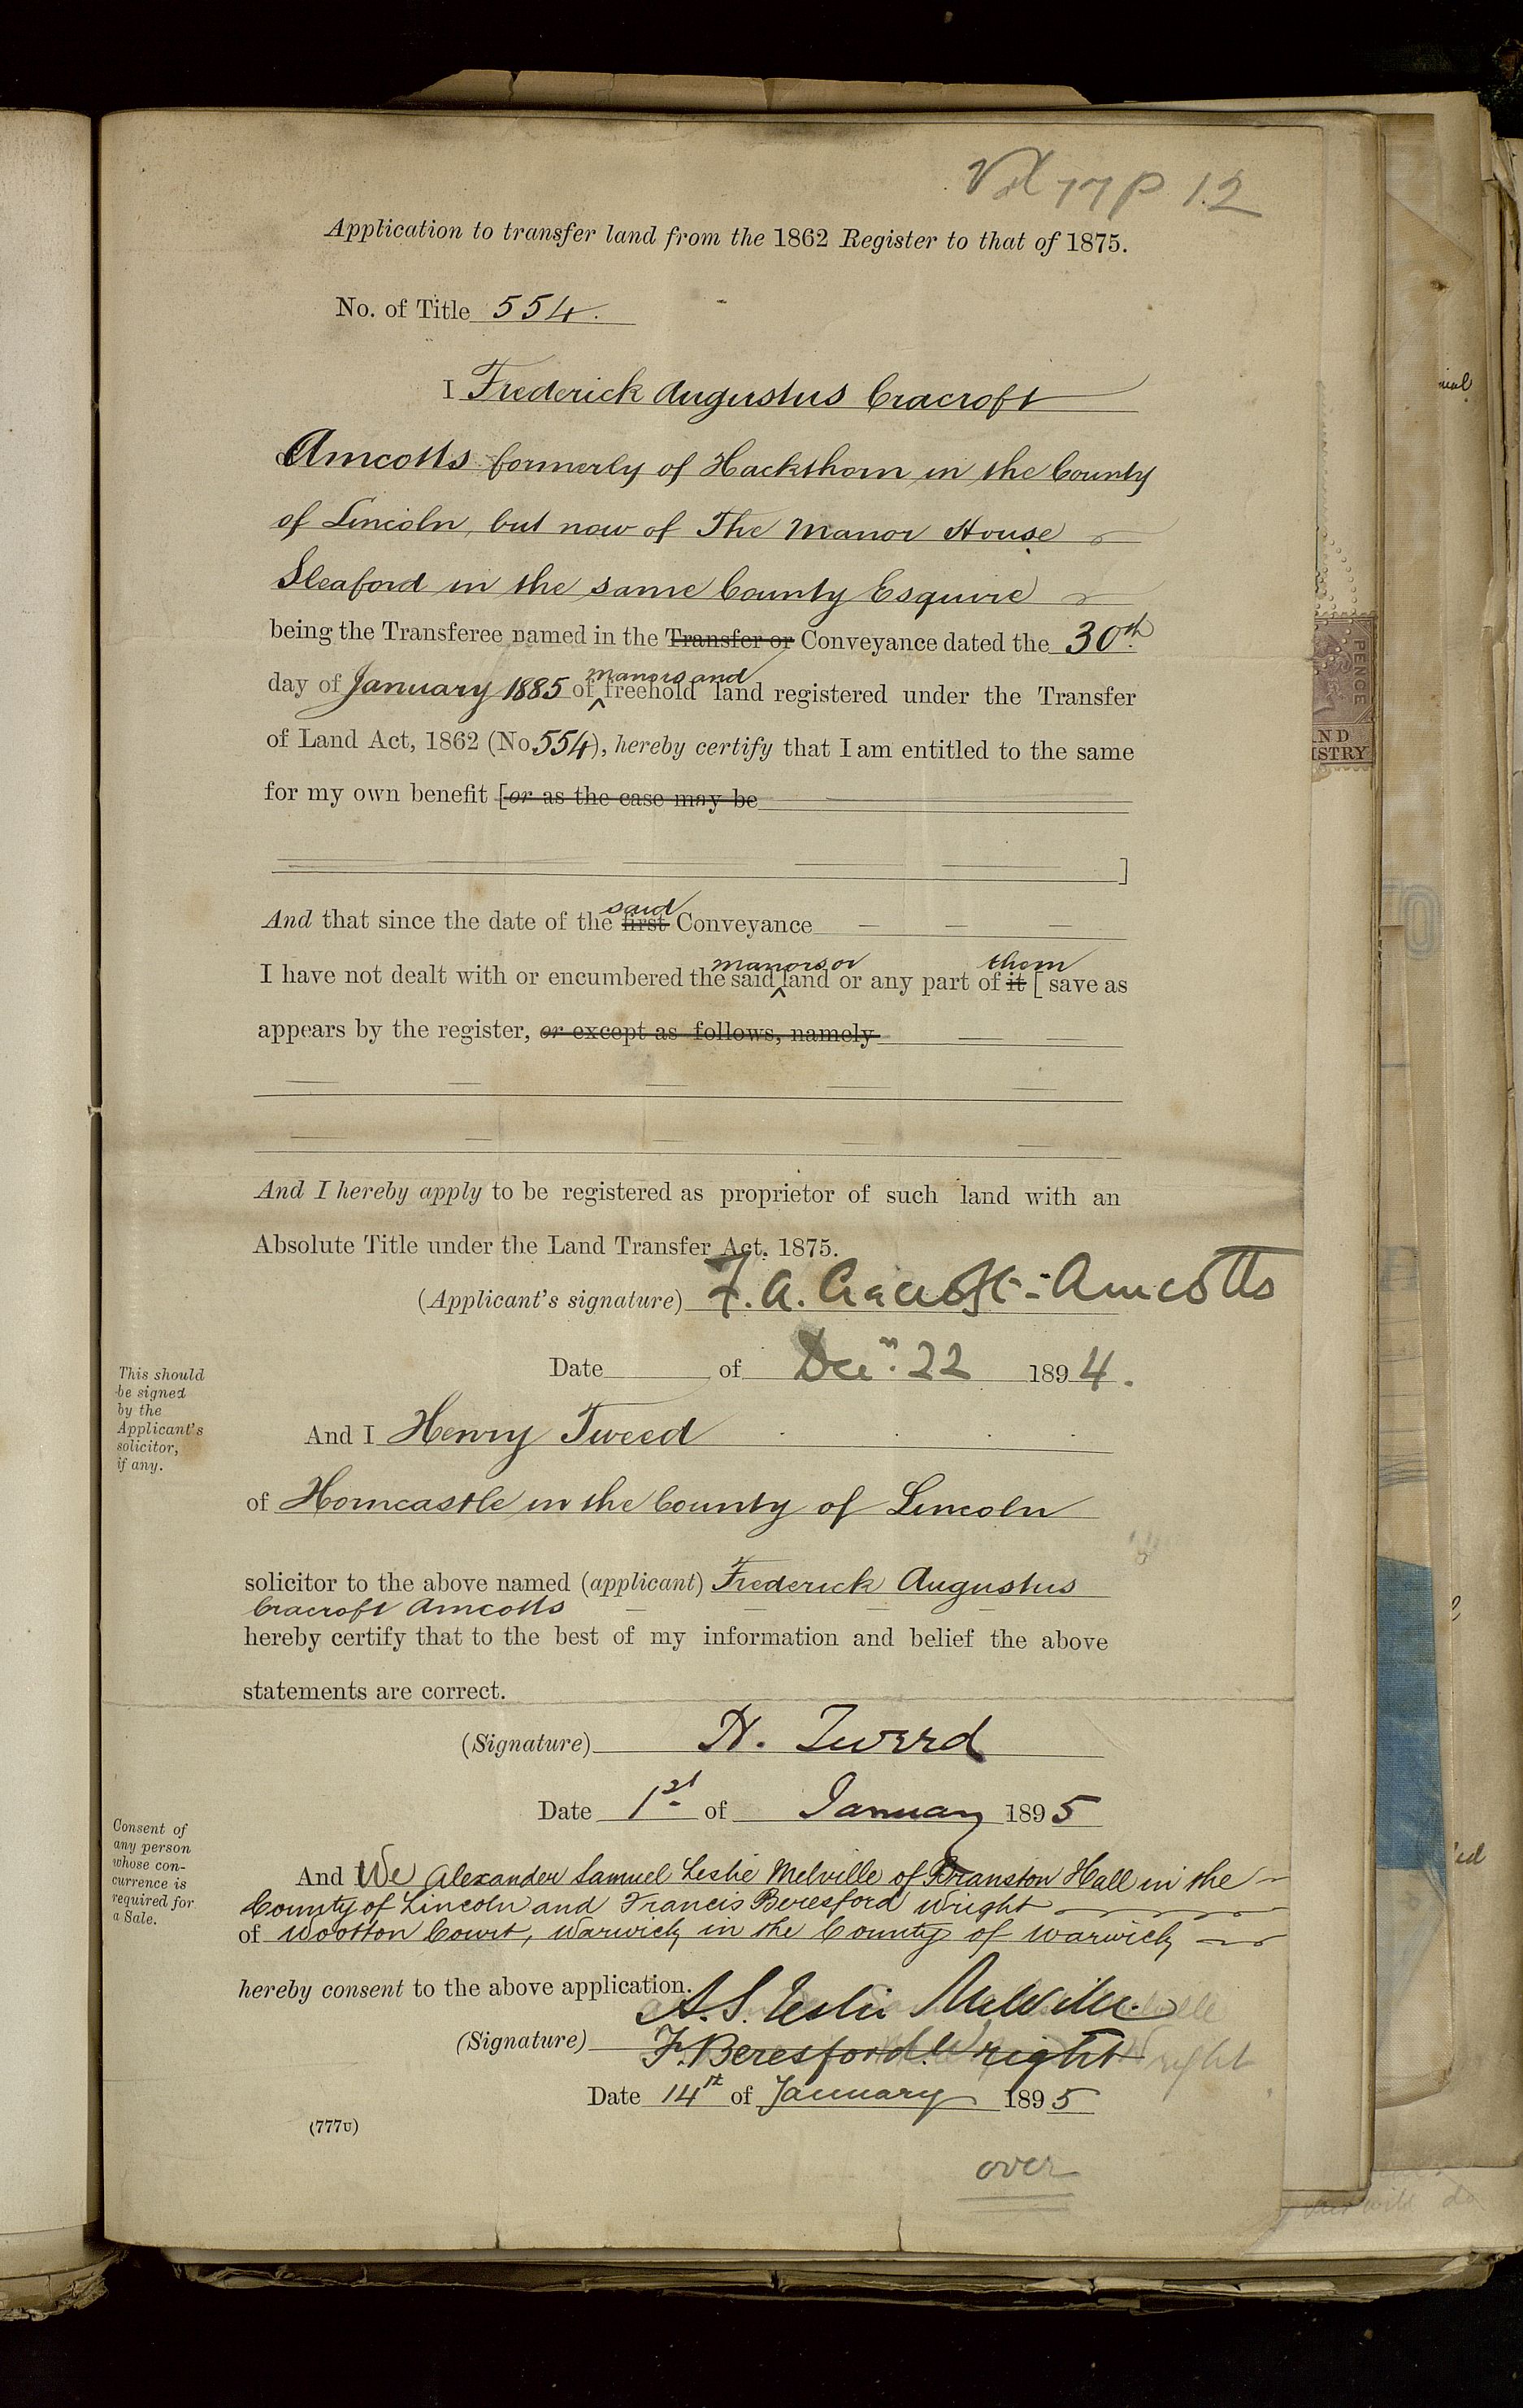 Vol 77 p. 12
Application to transfer land from the 1862 Register to that of 1875.
No. of Title 554.
I Frederick Augustus Cracroft
Amcotts formerly of Hackthorn in the County
of Lincoln, but now of The Manor House
Sleaford in the same County Esquire
being the Transferee named in the Transfer or Conveyance dated the 30th.
manors and
day of January 1885 of freehold land registered under the Transfer
of Land Act, 1862 (No 554), hereby certify that I am entitled to the same
for my own benefit [or as the case may be
]
said
And that since the date of the first Conveyance
manors or them
I have not dealt with or encumbered the said land or any part of it [ save as
appears by the register, or except as follows, namely
And I hereby apply to be registered as proprietor of such land with an
Absolute Title under the Land Transfer Act, 1875.
(Applicant's signature) F. A. Cracroft-Amcotts
Date of Decr. 22 1894.
This should
be signed
by the
Applicant's
solicitor,
if any.
And I Henry Tweed
of Horncastle in the County of Lincoln
solicitor to the above named (applicant) Frederick Augustus
Cracroft Amcotts
hereby certify that to the best of my information and belief the above
statements are correct.
(Signature) H. Tweed
Date 1st of January 1895
Consent of
any person
whose con-
currence is
required for
a Sale.
And We Alexander Samuel Leslie Melville of Branston Hall in the
County of Lincoln and Francis Beresford Wright
of Wootton Court, Warwick in the County of Warwick
hereby consent to the above application.
A. S. Leslie Melville
(Signature) F. Beresford Wright
Date 14th of January 1895
(777U)
over
PENCE
AND
ISTRY